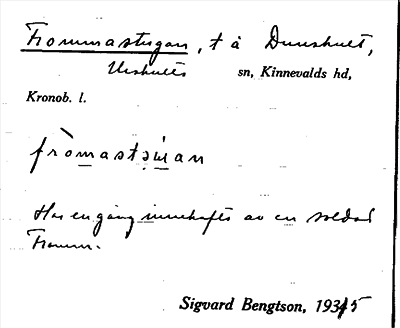 Frommastugan, t å Dunshult,
Urshults sn, Kinnevalds hd,
Kronob. l.
fròmastɯan
Har en gång innehafts av en soldat
Fromm.
Sigvard Bengtson, 1935